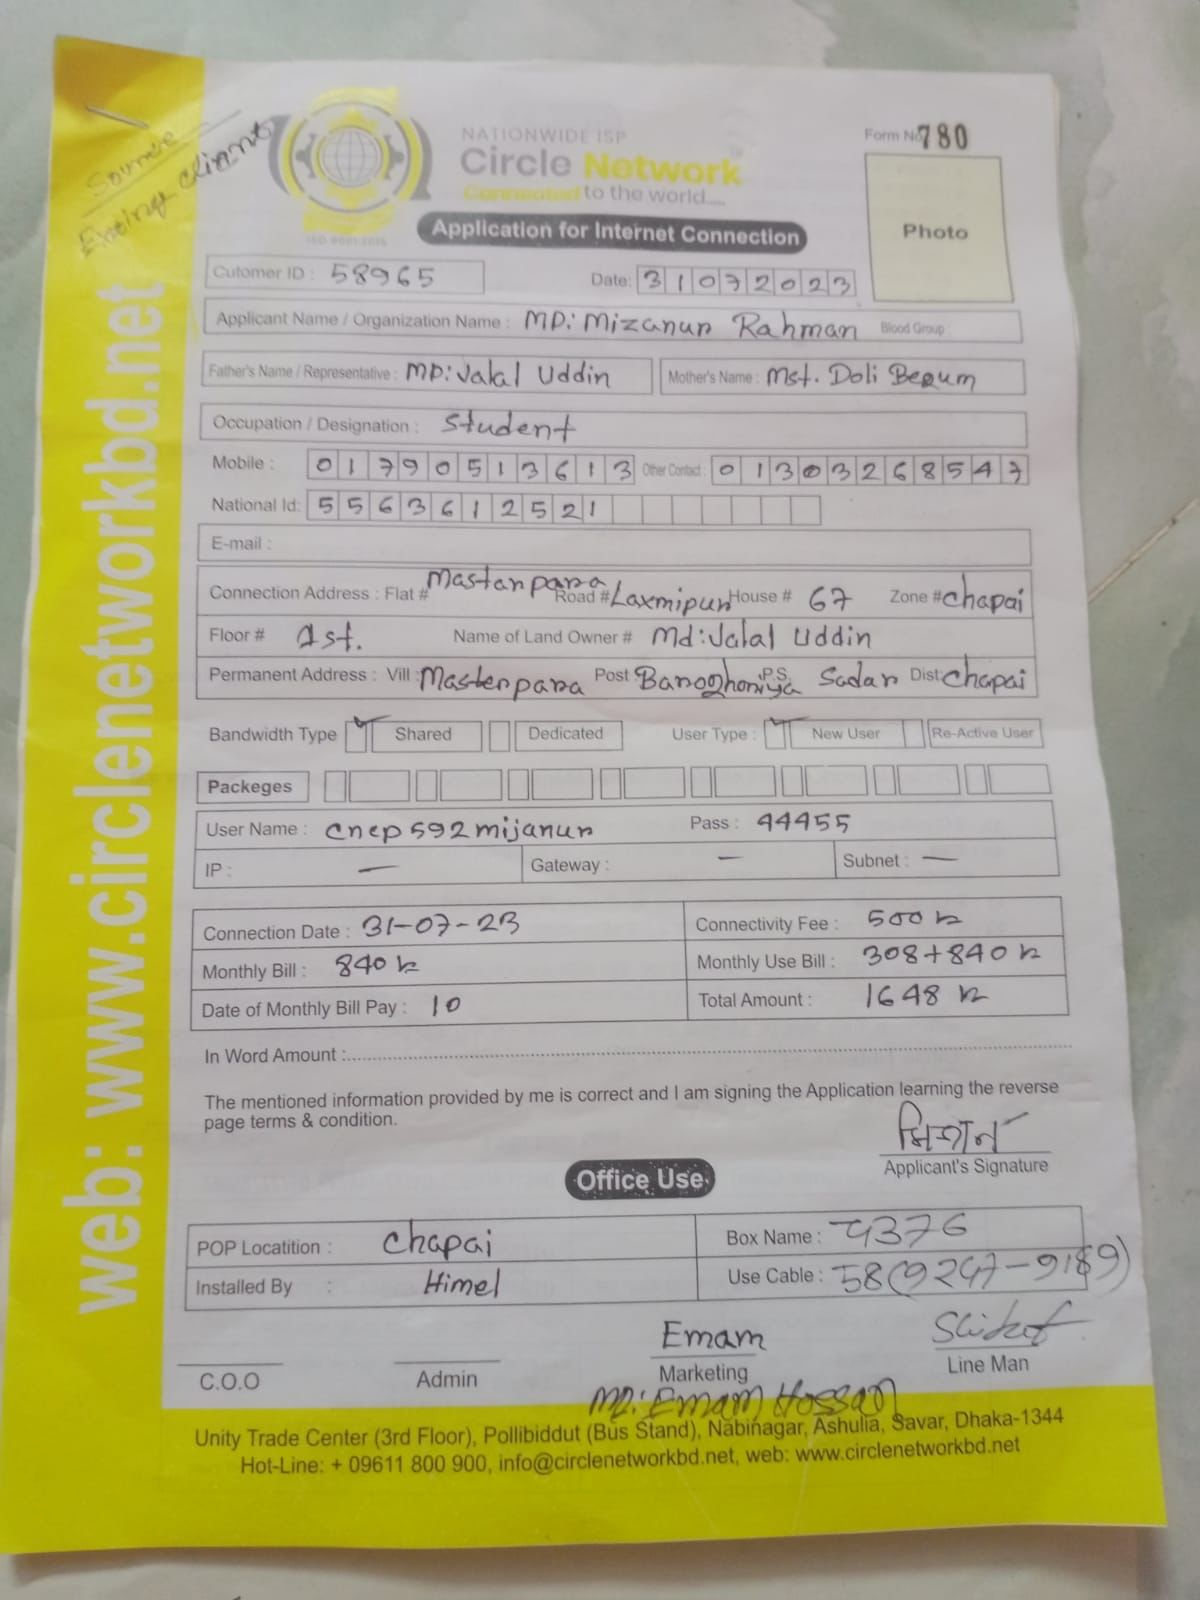 Source
Exting client
NATIONWIDE ISP
Circle Network
Connected to the world.....
ISO 9001:2015
Form No 780
Photo
Application for Internet Connection
Cutomer ID : 58965 Date: 31072023
Applicant Name / Organization Name : MD: Mizanur Rahman Blood Group :
Father's Name / Representative : MD: Jalal Uddin Mother's Name : Mst. Doli Begum
Occupation / Designation : Student
Mobile : 01790513613 Other Contact : 01303268547
National Id: 5563612521
E-mail :
Connection Address : Flat # Mastanpara Road # Laxmipur House # 67 Zone # chapai
Floor # 1st. Name of Land Owner # Md: Jalal Uddin
Permanent Address : Vill : Mastenpara Post : Baroghoniya P.S. Sadar Dist: chapai
Bandwidth Type Shared Dedicated User Type : New User Re-Active User
Packeges
User Name : cnep592mijanur Pass : 44455
IP : — Gateway : — Subnet : —
Connection Date : 31-07-23 Connectivity Fee : 500 k
Monthly Bill : 840 k Monthly Use Bill : 308+840 k
Date of Monthly Bill Pay : 10 Total Amount : 1648 k
In Word Amount :
The mentioned information provided by me is correct and I am signing the Application learning the reverse
page terms & condition.
মিজান
Applicant's Signature
Office Use
POP Locatition : chapai Box Name : 4376
Installed By : Himel Use Cable : 58(9247-9189)
Emam
C.O.O Admin Marketing Line Man
MD: Emam Hossan
Unity Trade Center (3rd Floor), Pollibiddut (Bus Stand), Nabinagar, Ashulia, Savar, Dhaka-1344
Hot-Line: + 09611 800 900, info@circlenetworkbd.net, web: www.circlenetworkbd.net
web: www.circlenetworkbd.net